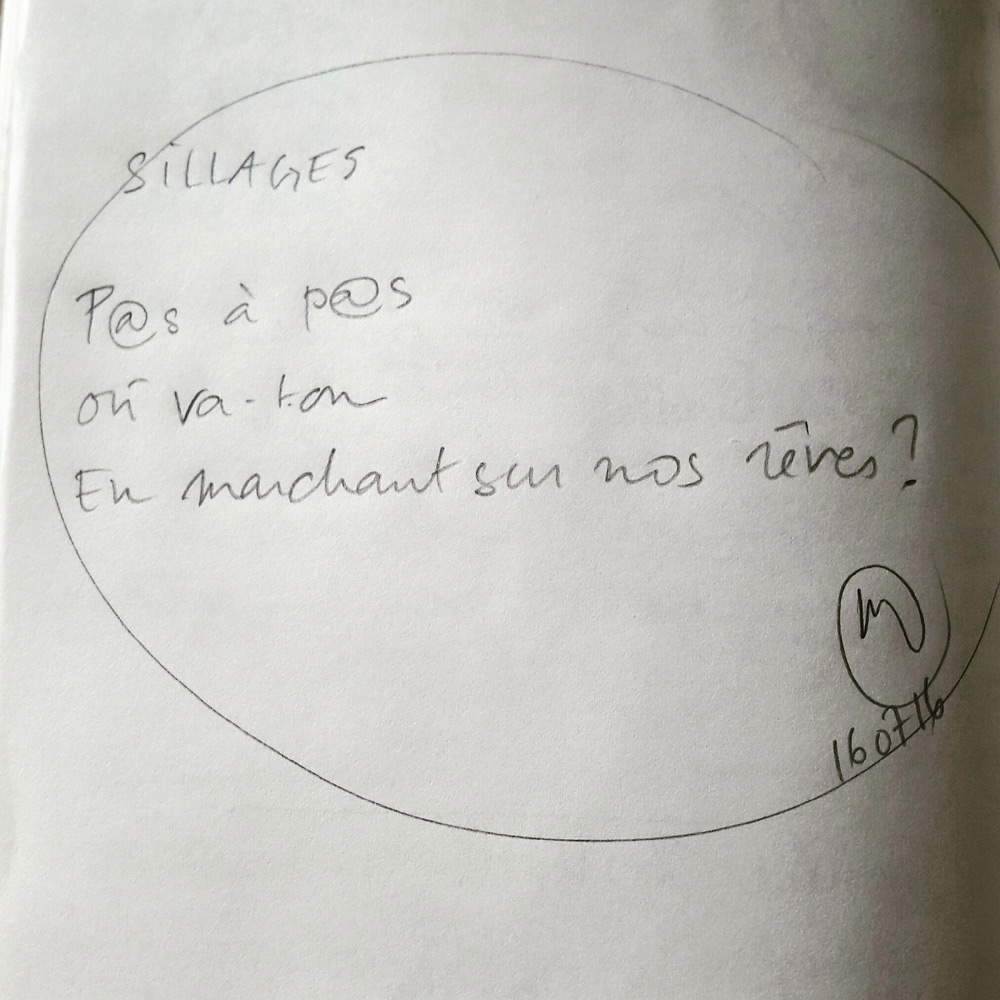 SiLLAGES
P@s à p@s
où va-ton
En marchant sur nos rêves?
m
160716